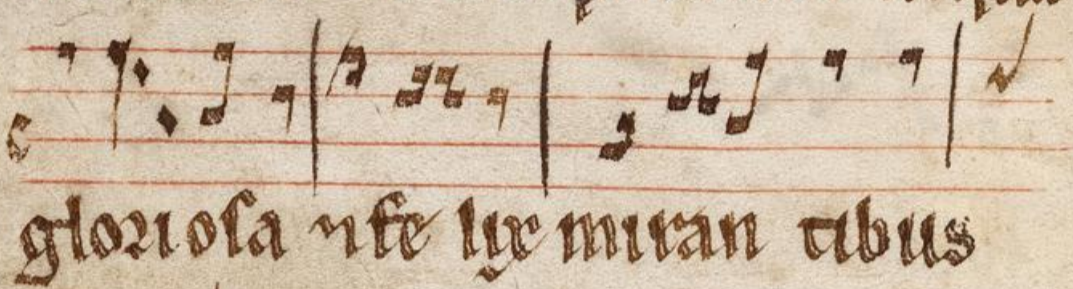 gloriosa n fe lix miran tibus